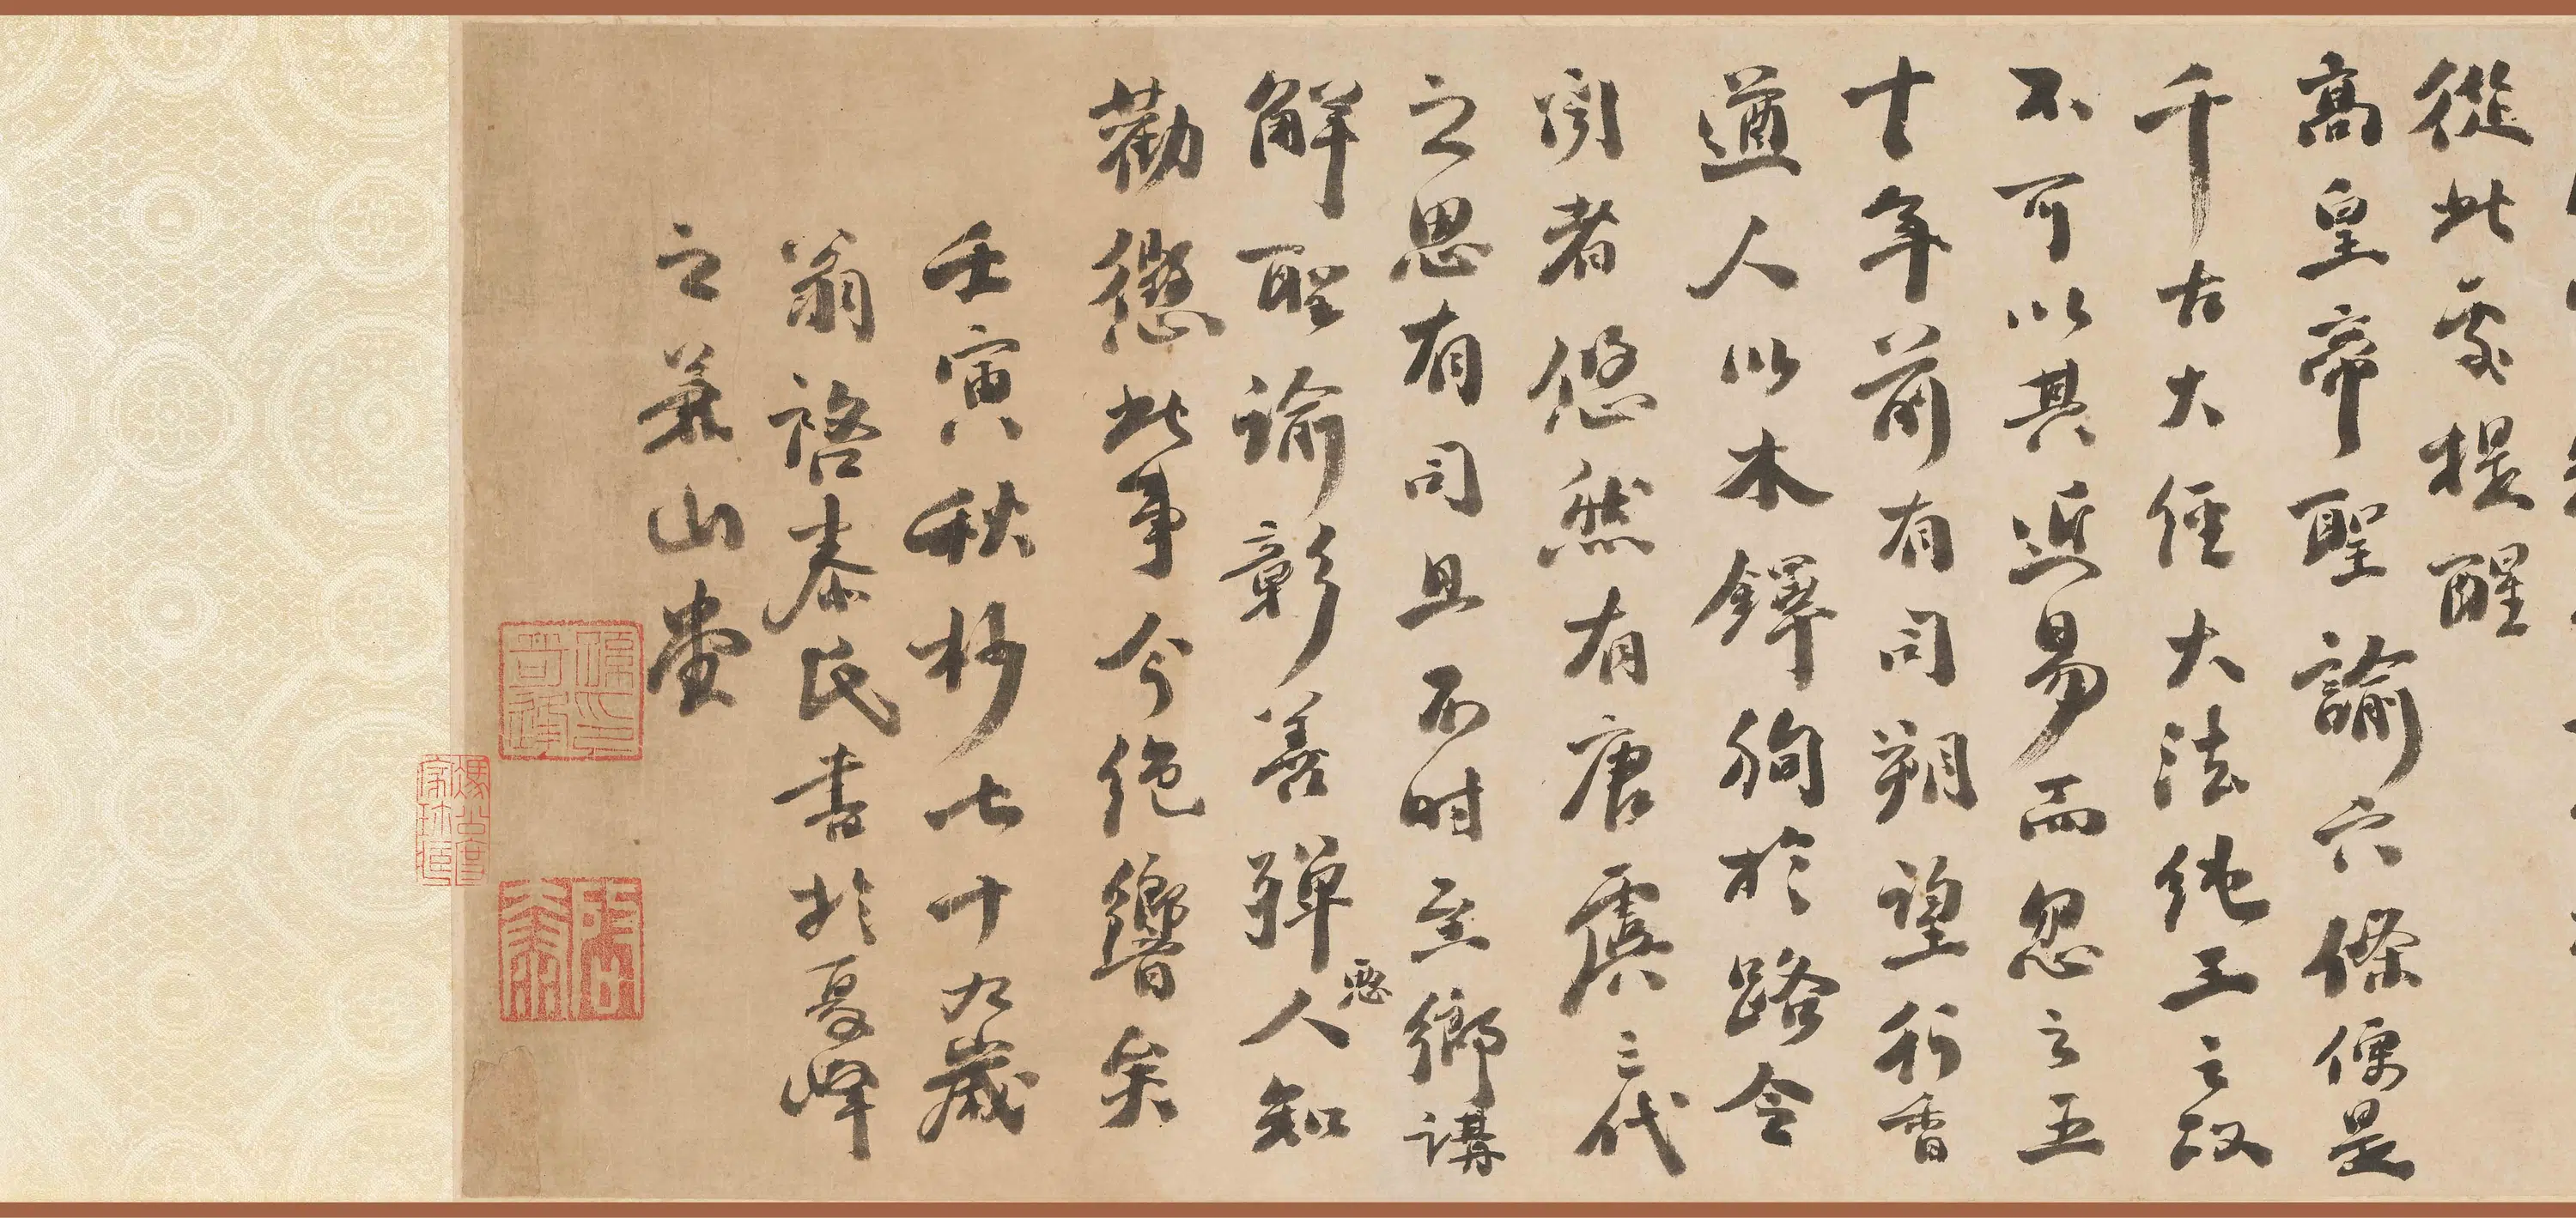 從此處提醒
高皇帝聖諭六條便是
千古大經大法純王之政
不可以其近易而忽之五
十年前有司朔望行香
遒人以木鐸徇於路令
聞者悠然有唐虞三代
之思有司且不时至鄉講
解聖諭彰善彈惡人知
勸懲此事今絕響矣
壬寅秋杪七十九歲
翁啓泰氏書於夏峰
之兼山堂